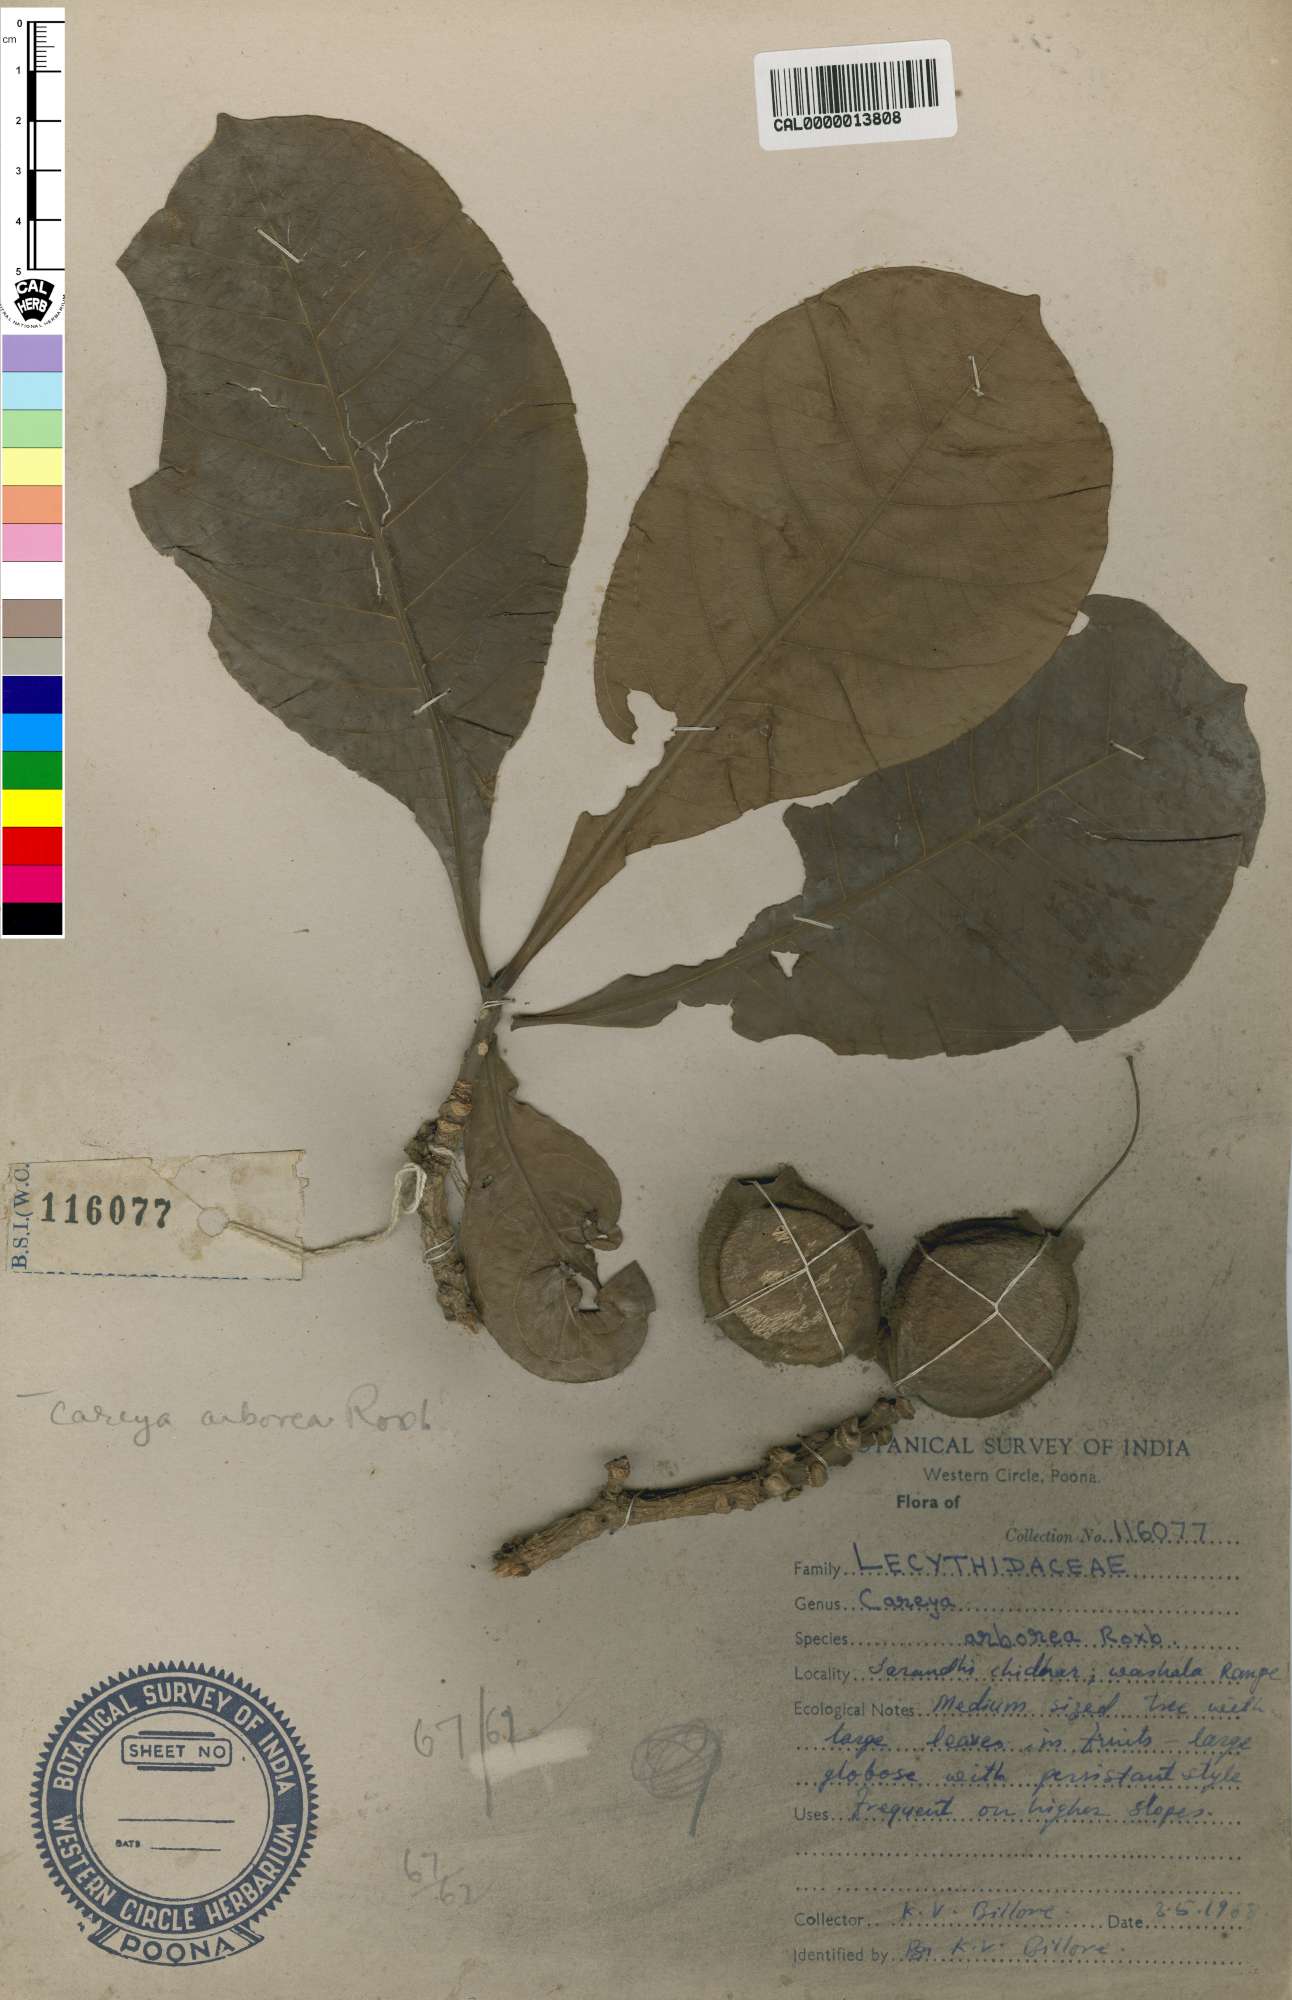 0
cm
1
2
3
4
5
CAL
HERB
CENTRAL NATIONAL HERBARIUM
CAL0000013808
B.S.I.(W.C.)
116077
Careya arborea Roxb
BOTANICAL SURVEY OF INDIA
Western Circle, Poona.
Flora of
Collection No. 116077
Family LECYTHIDACEAE
Genus Careya
Species arborea Roxb.
Locality chidhar; washala Range
Ecological Notes Medium sized tree with
large leaves in fruits - large
globose with persistant style
Uses Frequent on higher slopes.
Collector K. V. Billore.
Date
Identified by K. V. Billore.
67/62
67/62
BOTANICAL SURVEY OF INDIA
SHEET NO
DATE
WESTERN CIRCLE HERBARIUM
POONA